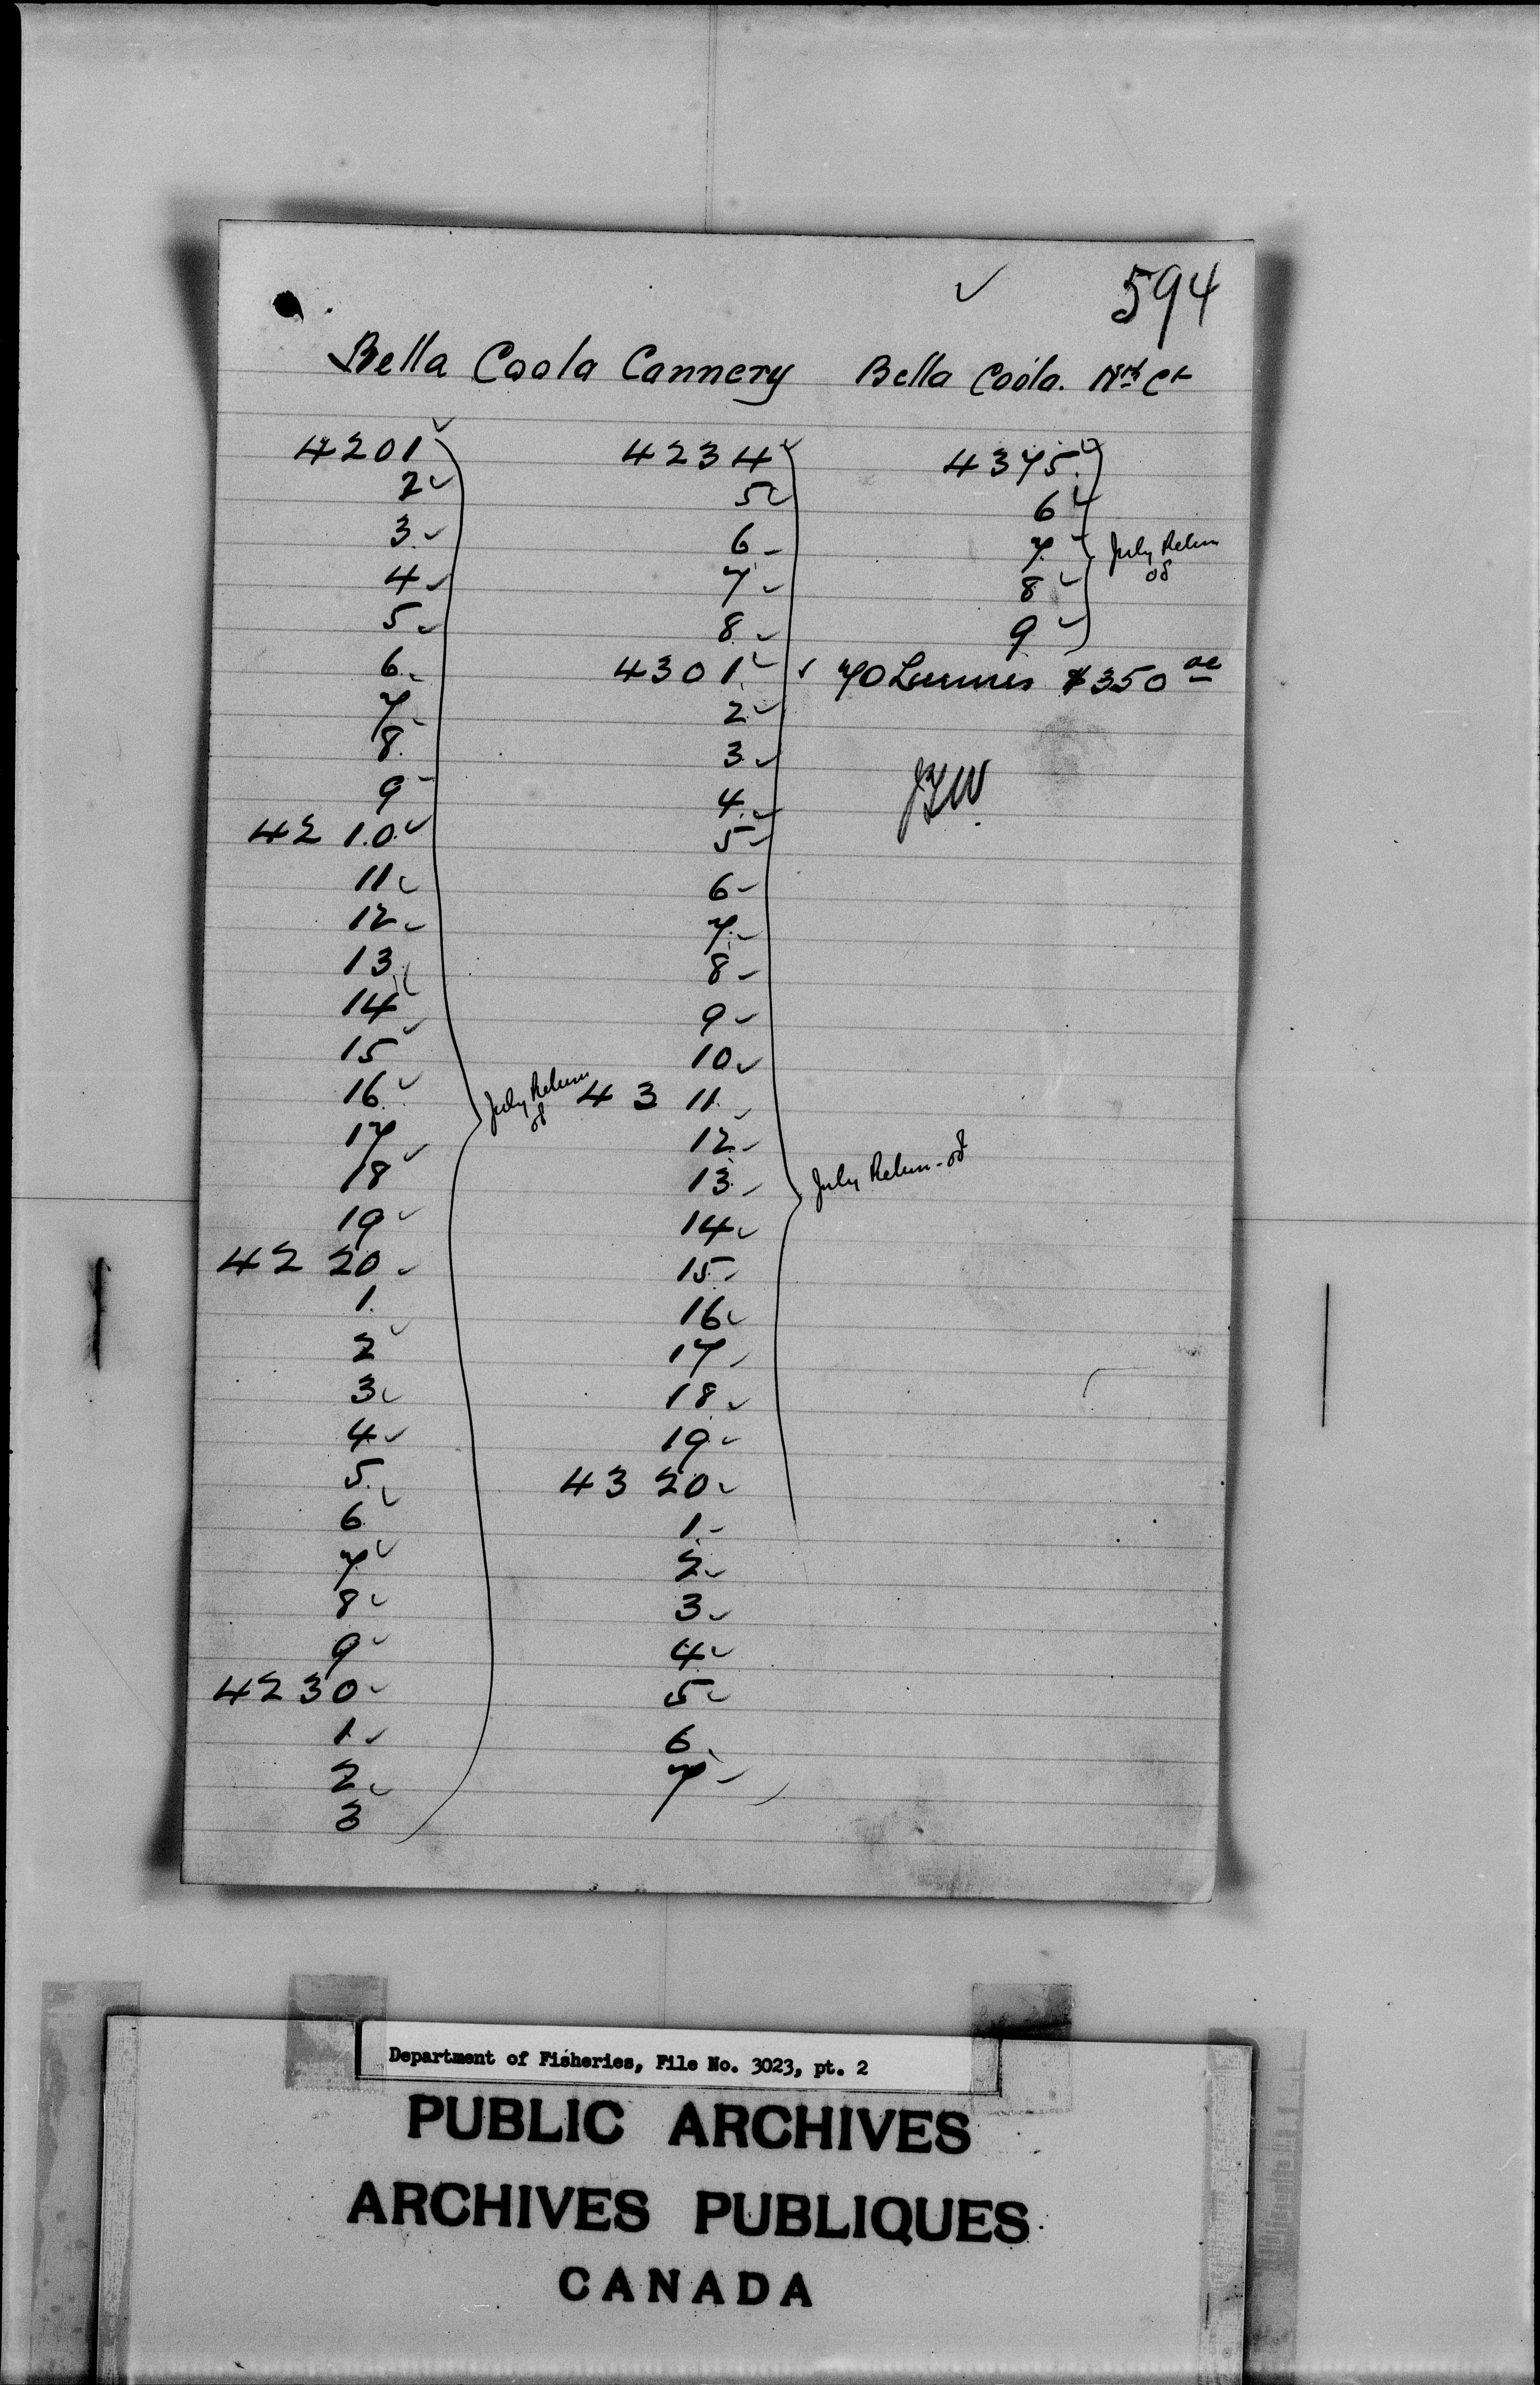 594
Bella Coola Cannery
4201
2
3
4
5
6
7
8
9
4210
11
12
13
14
15
16
17
18
19
4220
1
2
3
4
5
6
7
8
9
4230
1
2
3
July Return
08
4234
5
6
7
8
4301
2
3
4
5
6
7
8
9
10
4311
12
13
14
15
16
17
18
19
4320
1
2
3
4
5
6
7
July Return - 08
Bella Coola.
4375
6
7
8
9
July Return
08
70 $350
Department of Fisheries, File No. 3023, pt. 2
PUBLIC ARCHIVES
ARCHIVES PUBLIQUES
CANADA